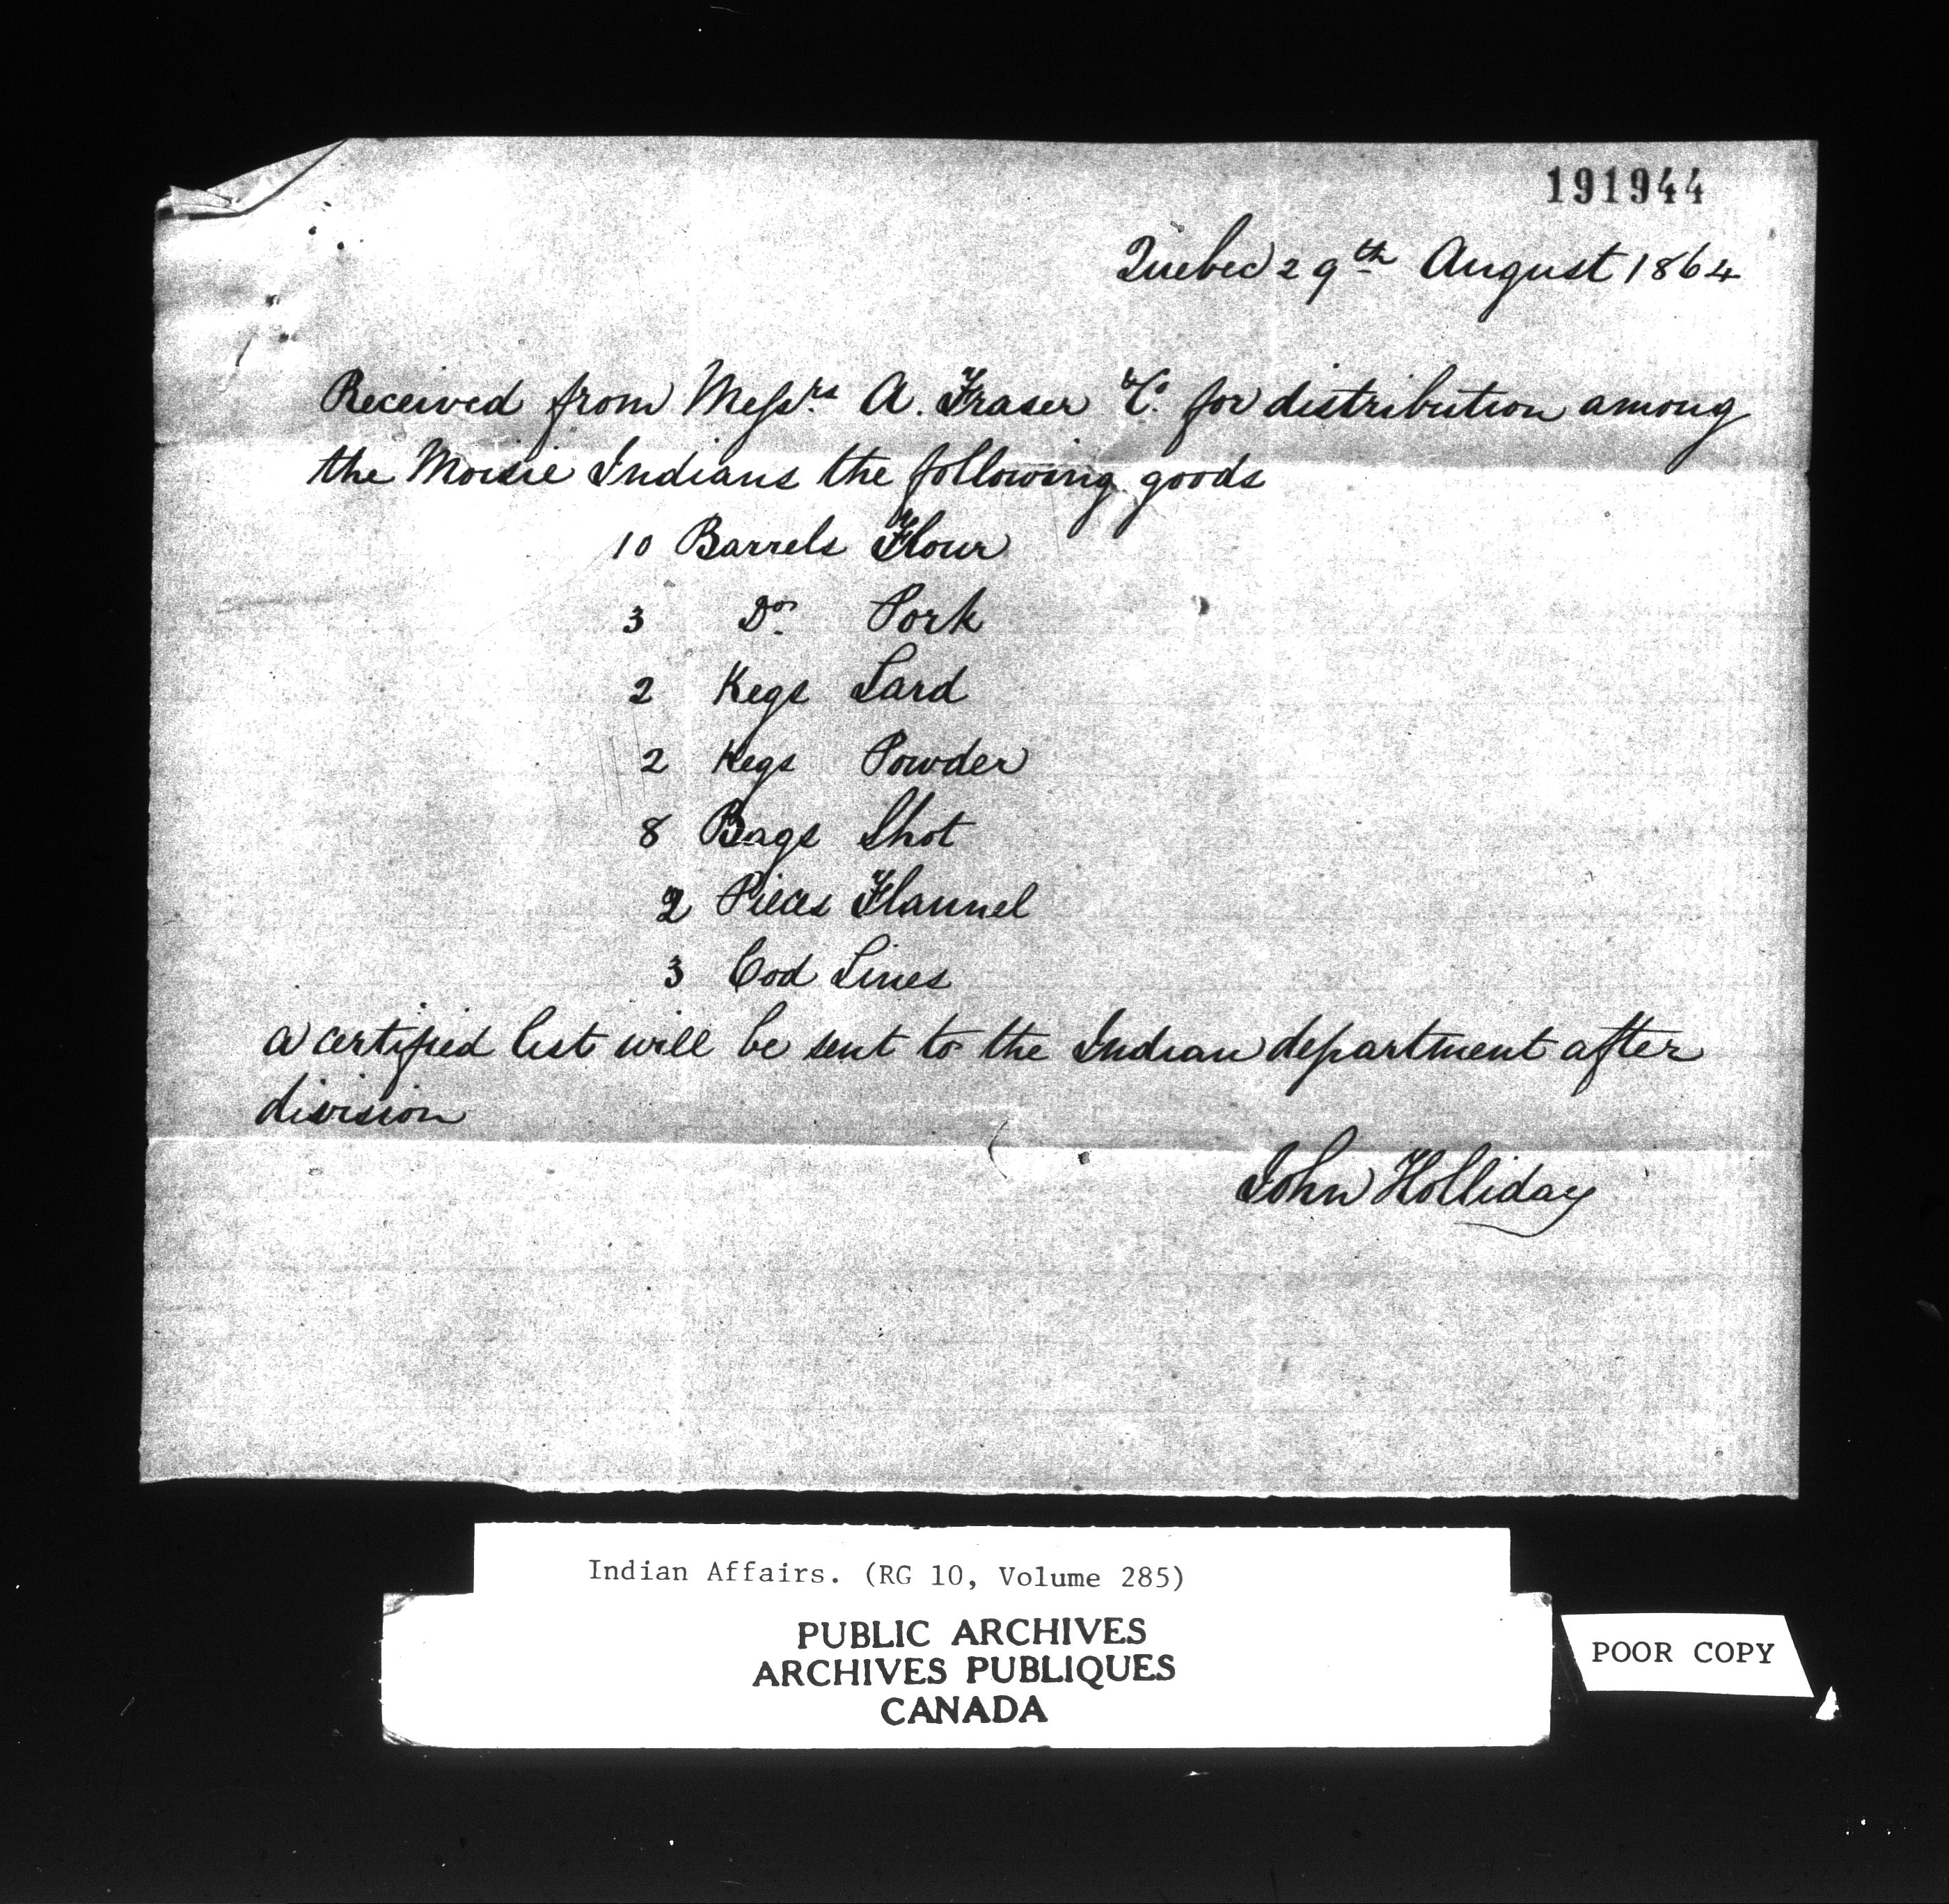 191944
Quebec 29th August 1864
Received from Messrs. A. Fraser & Co. for distribution among
the Moisie Indians the following goods
10 Barrels Flour
3 Do. Pork
2 Kegs Lard
2 Kegs Powder
8 Bags Shot
2 Pieces Flannel
3 Cod Lines
a certified list will be sent to the Indian department after
division
John Holliday
Indian Affairs. (RG 10, Volume 285)
PUBLIC ARCHIVES
ARCHIVES PUBLIQUES
CANADA
POOR COPY